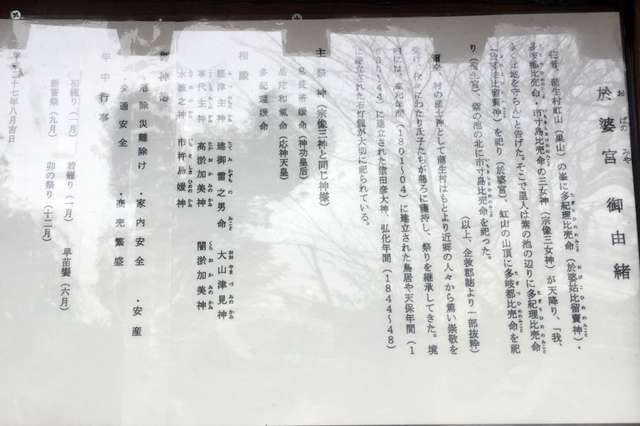 於婆宮 御由緒
おばのみや
蒲生村虹山（里山）の峯に多紀理比売命（於婆姑比留賣神）、
多岐都比売命、市寸島比売命の三女神（宗像三女神）が天降り、「我、
地を守らん」と告げた。そこで里人は紫の池の辺りに多紀理比売命
比留賣神）を祀り（於婆宮）、虹山の山頂に多岐都比売命を祀
り 紫の池の北に市寸島比売命を祀った。
（以上、企救郡誌より一部抜粋）
村の 神として蒲生村はもとより近郷の人々から篤い崇敬を
氏子たちが懇ろに護持し、祭りを継承してきた。境
内には、享和年間（1801～04）に建立された鳥居や天保年間（1
～44）に建立された猿田彦大神、弘化年間（1844～48）
に建立された石灯籠が大切に祀られている。
主祭神（宗像三神と同じ神様）
息長帯媛命（神功皇后）
品陀和氣命（応神天皇）
多紀理媛命
相殿
経津主神 建御雷之男命 大山津見神
事代主神 高淤加美神 闇淤加美神
水波之神 市杵島媛神
御神
厄除災難除け ・家内安全 ・安産
交通安全 ・商売繁盛
年中行事
（一月） 若鍋り（一月） 早苗饗（六月）
祭（九月） 卯の祭り（十二月）
二十七年八月吉日